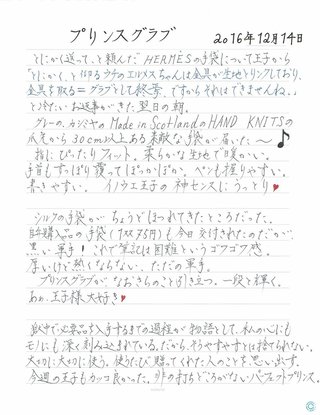 プリンスグラブ 2016年12月14日
とにかく送って、と頼んだHERMESの手袋について王子から
「とにかく、と仰るウチのエルメスちゃんは金具が生地とリンクしており、
金具を取る=グラブとして終焉、ですからそれはできませんね。」
と冷たいお返事がきた翌日の朝。
グレーの、カシミヤのMade in ScotlandのHAND KNITSの
爪先から30cm以上ある素敵な手袋が届いた〜♪
指にぴったりフィット。柔らかな生地で暖かい。
手首もすっぽり覆ってぽっかぽか。ペンも握りやすい。
書きやすい。イノウエ王子の神センスにうっとり♥
シルクの手袋がちょうどほつれてきたところだった。
自弁購入品の手袋(1双75円)も今日交付されたのだが、
黒い軍手!これで筆記は困難というゴワゴワ感。
厚いけど熱くならない、ただの軍手。
プリンスグラブがなおさらのこと引き立つ。一段と輝く。
あぁ、王子様大好き♥
獄中で必要品を入手するまでの過程が物語として、私の心にも
モノにも深く刻み込まれている。だからそうやすやすとは捨てられない。
大切に大切に使う。使うたび贈ってくれた人のことを思い出す。
今週の王子もカッコ良かった。非の打ちどころがないパーフェクトプリンス。